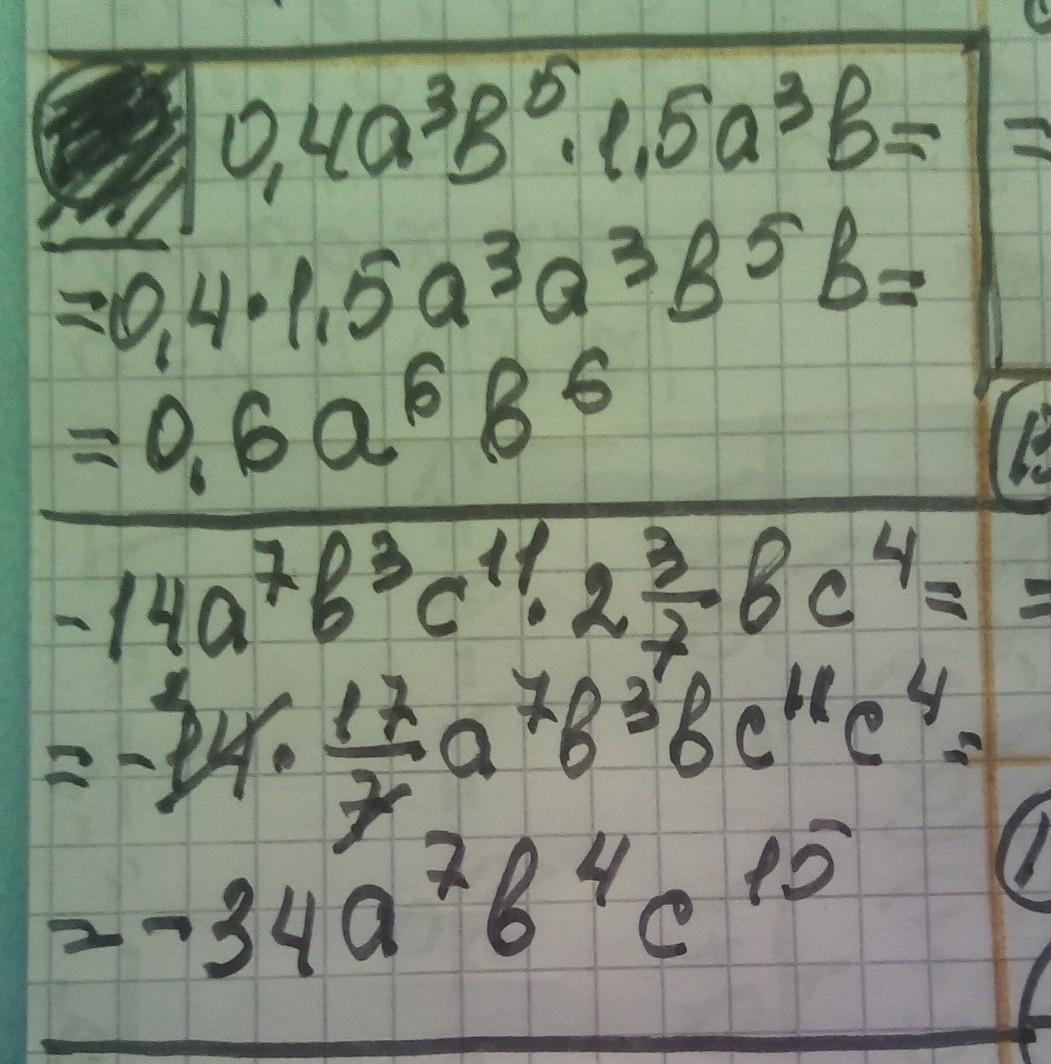 0,4a³b⁵·1,5a³b=
=0,4·1,5a³a³b⁵b=
=0,6a⁶b⁶
-14a⁷b³c¹¹·2 3/7 bc⁴=
=-14·17/7 a⁷b³bc¹¹c⁴=
=-34a⁷b⁴c¹⁵